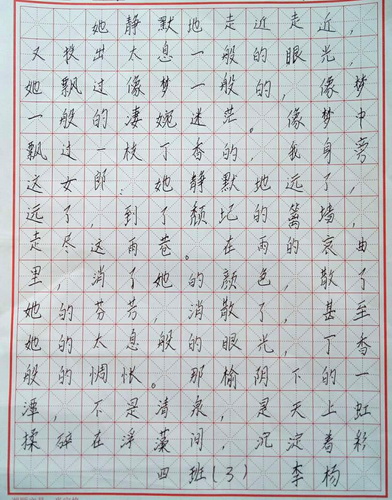 她静默地走近走近，
又投出太息一般的眼光，
她飘过像梦一般的，像梦
一般的凄婉迷茫。像梦中
飘过一枝丁香的，我身旁
这女郎；她静默地远了，
远了，到了颓圮的篱墙，
走尽这雨巷。在雨的哀曲
里，消了她的颜色，散了
她的芬芳，消散了，甚至
她的太息般的眼光，丁香
般的惆怅。那榆阴下的一
潭，不是清泉，是天上虹
揉碎在浮藻间，沉淀着彩
四班(3) 李杨